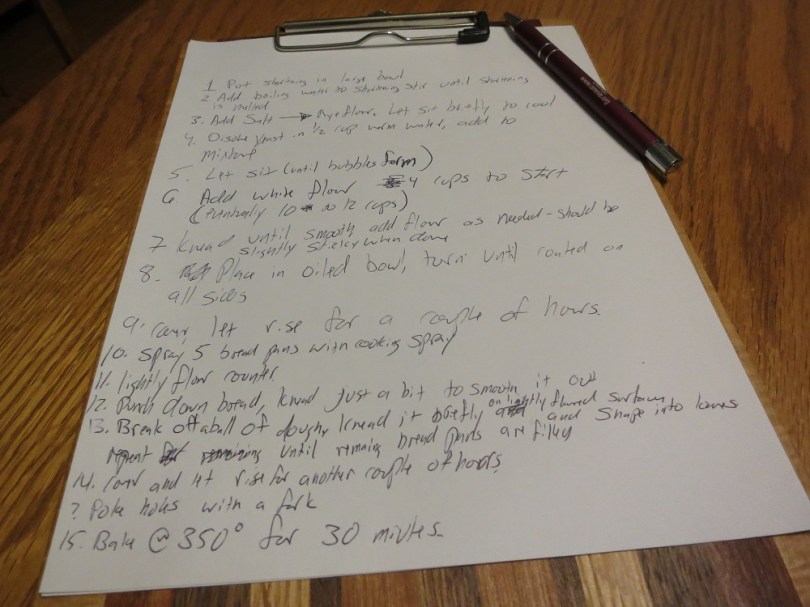 1 Put shortening in large bowl
2. Add boiling water to shortening stir until shortening
is melted
3. Add Salt → rye flour. Let sit briefly to cool
4. Disolve yeast in 1/2 cup warm water, add to
mixture
5. Let sit (until bubbles form)
6 Add white flour 4 cups to start
(eventually 10 to 12 cups)
7 knead until smooth add flour as needed - should be
slightly sticky when done
8. Place in oiled bowl, turn until coated on
all sides
9. cover, let rise for a couple of hours.
10. Spray 5 bread pans with cooking spray
11. lightly flour counter
12. Punch down bread, knead just a bit to smooth it out
13. Break off a ball of dough, knead it briefly on lightly floured surface and shape into loaves
repeat until remaining bread pans are filled
14. cover and let rise for another couple of hours
? Poke holes with a fork
15. Bake @ 350° for 30 minutes.